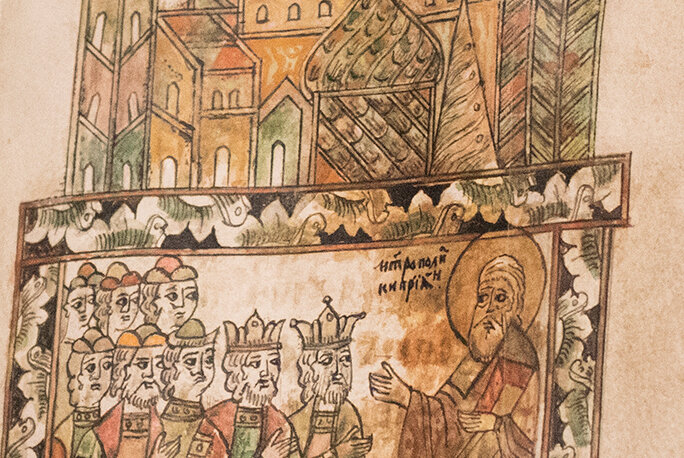 митрополи
кипріан